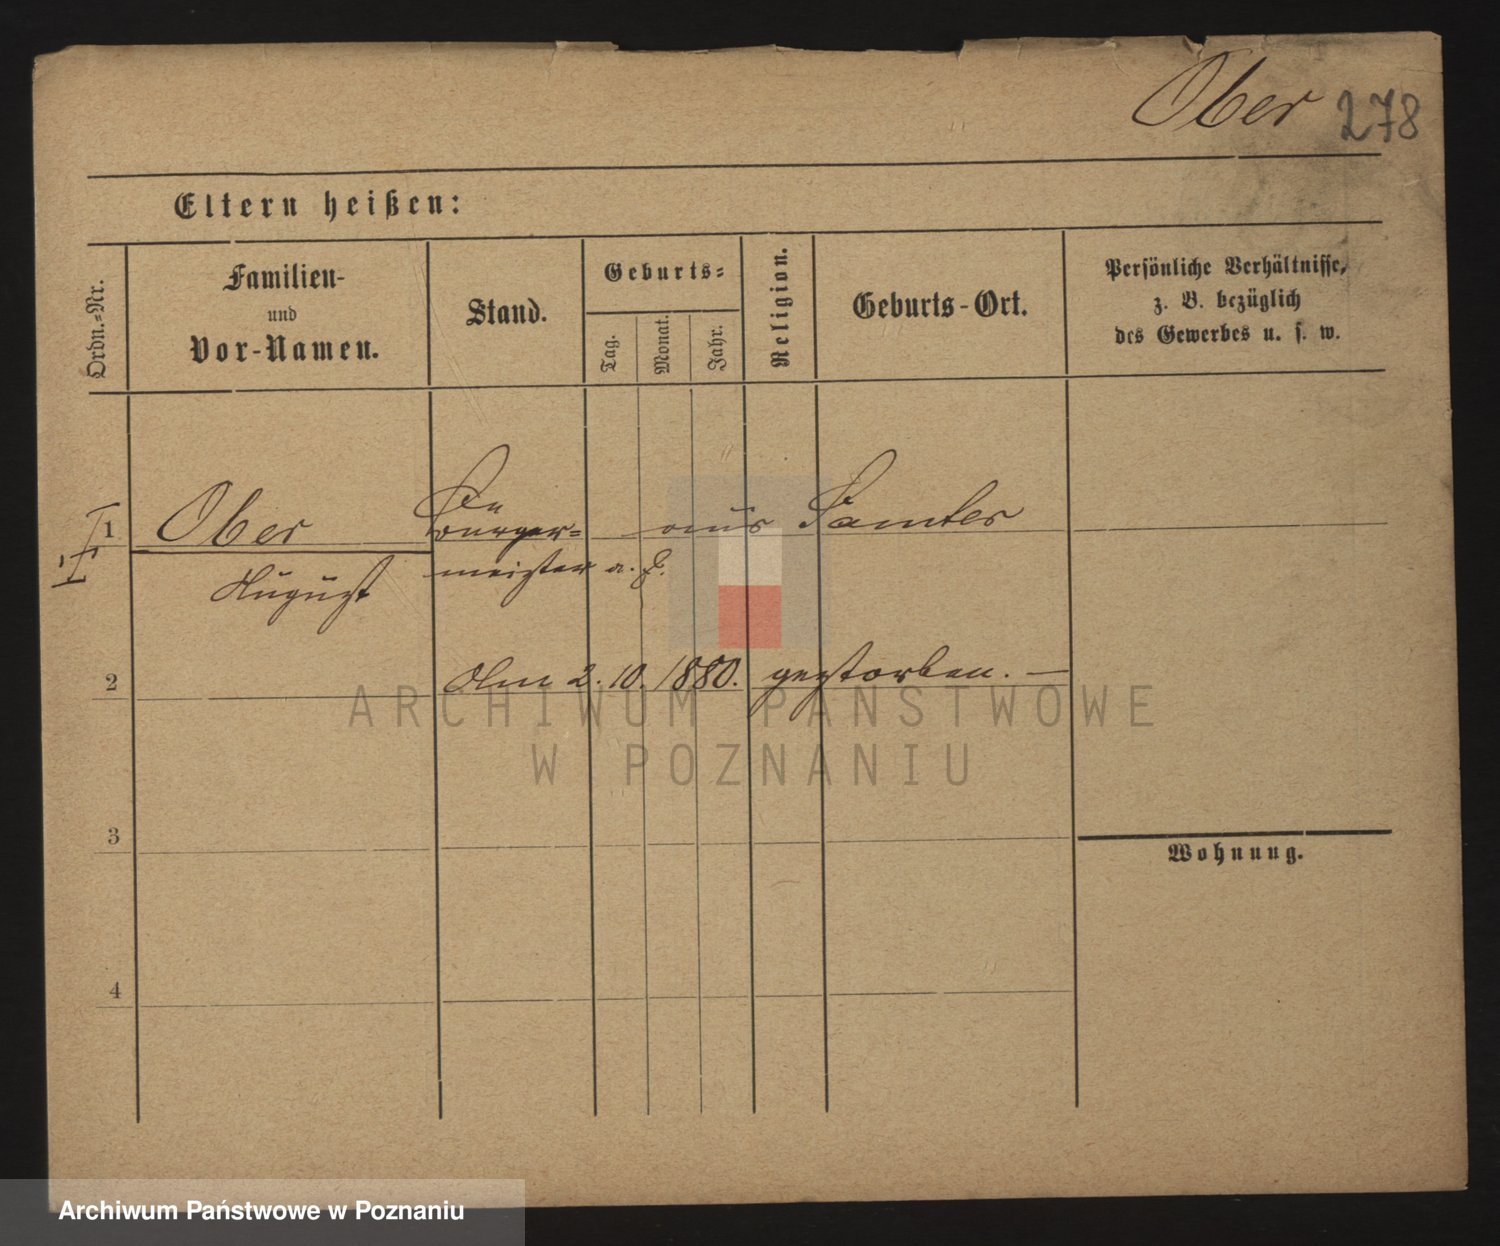 Ober 278
Eltern heißen:
Ordn.-Nr.
Familien-
und
Vor-Namen.
Stand.
Geburts-
Tag.
Monat.
Jahr.
Religion.
Geburts-Ort.
Persönliche Verhältnisse,
z. B. bezüglich
des Gewerbes u. s. w.
1
Ober
Bürger- aus Samter
August
meister a. D.
2
Am 2. 10. 1880. gestorben. —
3
Wohnung.
4
ARCHIWUM PAŃSTWOWE
W POZNANIU
Archiwum Państwowe w Poznaniu